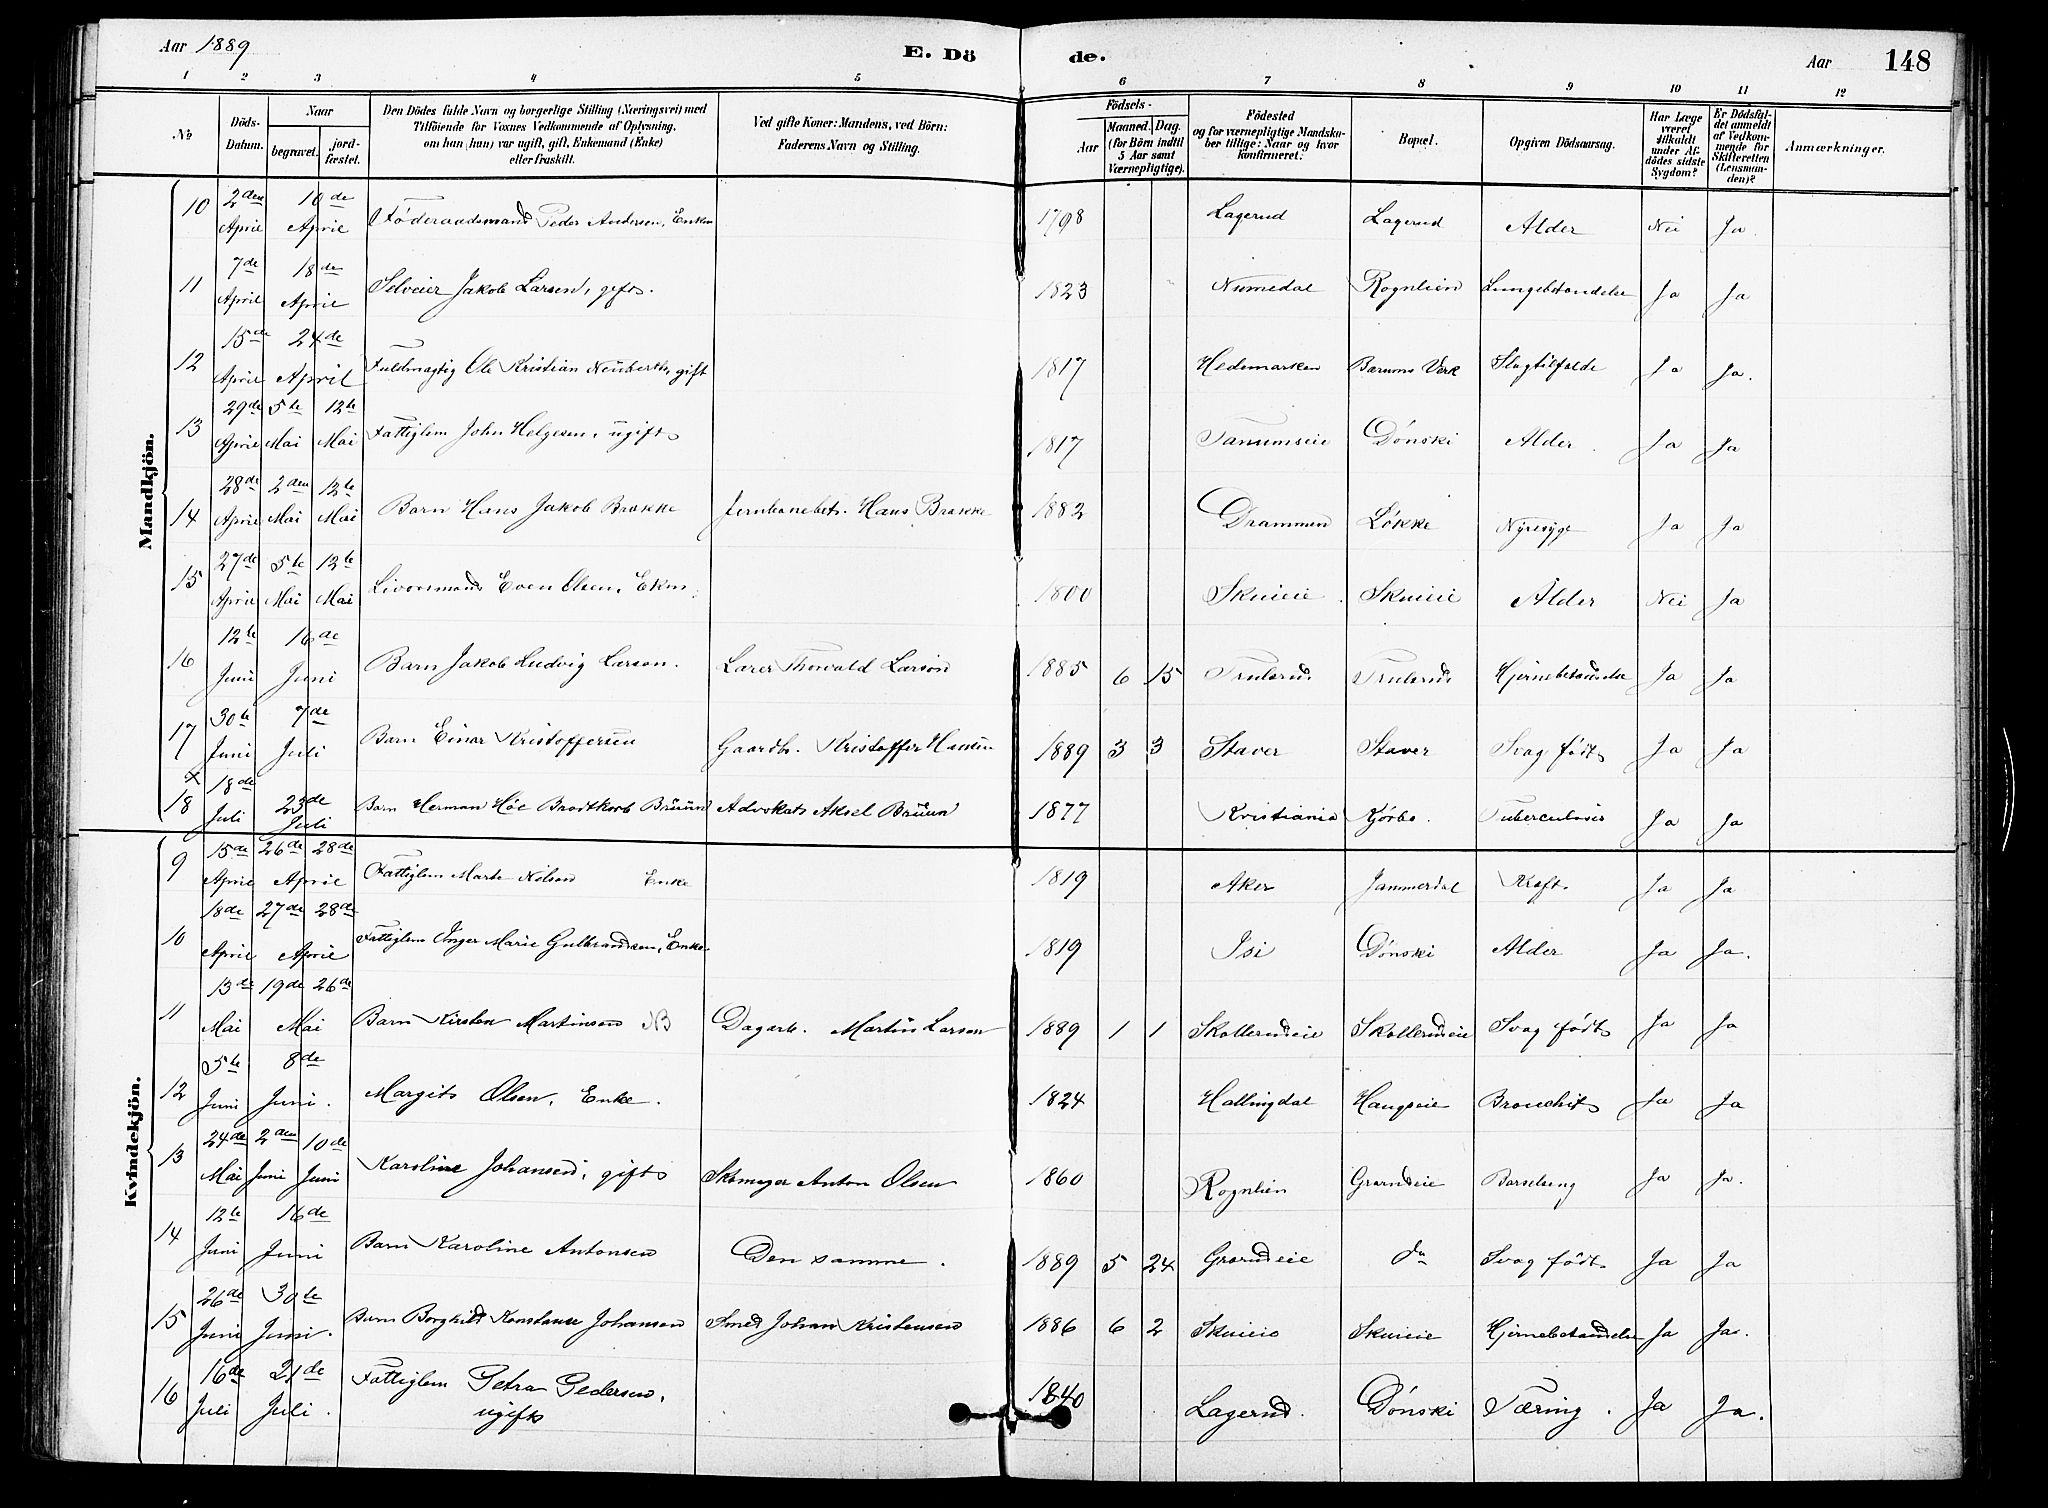 Aar 1889
E. Dö de.
Aar 148
1 2 3 4 5 6 7 8 9 10 11 12
No
Döds-Datum.
Naar
begravet.
jord-fæstet.
Den Dödes fulde Navn og borgerlige Stilling (Næringsvei) med
Tilföiende for Voxnes Vedkommende af Oplysning,
om han (hun) var ugift, gift, Enkemand (Enke)
eller fraskilt.
Ved gifte Koner: Mandens, ved Börn:
Faderens Navn og Stilling.
Födsels-
Aar
Maaned. Dag.
(for Börn indtil
5 Aar samt
Værnepligtige).
Födested
og for værnepligtige Mandska-
ber tillige: Naar og hvor
konfirmeret.
Bopæl.
Opgiven Dödsaarsag.
Har Læge
været
tilkaldt
under Af-
dödes sidste
Sygdom?
Er Dödsfal-
det anmeldt
af Vedkom-
mende for
Skifteretten
(Lensman-
den)?
Anmærkninger.
Mandkjön.
10 2den April 10de April Föderaadsmand Peder Andersen, Enkm 1798 Lagerud Lagerud Alder Nei Ja.
11 7de April 18de April Selveier Jakob Larsen, gift. 1823 Numedal Rognlien Lungebetændelse Ja Ja
12 15de April 24de April Fuldmægtig Ole Kristian Neuberth, gift 1817 Hedemarken Bærums Verk Slagtilfælde Ja Ja.
13 29de April 5te Mai 12te Mai Fattiglem John Helgesen, ugift 1817 Tanumseie Dönski Alder. Ja Ja
14 28de April 2den Mai 12te Mai Barn Hans Jakob Brække Jernbanebet. Hans Brække 1882 Drammen Lökke Nyresyge Ja Ja
15 27de April 5te Mai 12te Mai Livorsmand Even Olsen, Ekm. 1800 Skuieie. Skuieie Alder Nei Ja
16 12te Juni 16de Juni Barn Jakob Ludvig Larsen. Lærer Thorvald Larsen 1885 6 15 Trulsrud Trulsrud Hjernebetændelse Ja Ja
17 30te Juni 7de Juli Barn Einar Kristoffersen Gaardbr. Kristoffer Hansen 1889 3 3 Staver Staver Svag födt Ja Ja
x
18 18de Juli 23de Juli Barn Herman Höe Brodtkorb Bruun Advokat Aksel Bruun 1877 Kristiania Kjörbo. Tuberculosis Ja Ja
Kvindekjön.
9 15de April 26de 28de April Fattiglem Marte Nilsen Enke 1819 Aker Jammerdal Kræft. Ja Ja
10 18de April 27de 28de April Fattiglem Inger Marie Gulbrandsen, Enke. 1819 Isi Dönski Alder Ja Ja.
11 13de Mai 19de 26de Mai Barn Kirsten Martinsen NB Dagarb. Martin Larsen 1889 1 1 Skollerudeie Skollerudeie Svag födt Ja Ja
12 5te Juni 8de Juni. Margit Olsen, Enke. 1824 Hallingdal Haugseie Bronchit Ja Ja
13 24de Mai 2den Juni 10de Juni Karoline Johansen, gift Skomager Anton Olsen 1860 Rognlien Grændeie Barselseng Ja Ja.
14 12te Juni 16de Juni Barn Karoline Antonsen Den samme. 1889 5 24 Grændeie do Svag födt. Ja Ja
15 26de Juni 30te Juni. Barn Borghild Konstanse Johansen Smed Johan Kristensen 1886 6 2 Skuieie Skuieie Hjernebetændelse Ja Ja.
16 16de Juli 21de Juli. Fattiglem Petra Pedersen, ugift 1840 Lagerud. Dönski Tæring. Ja Ja.